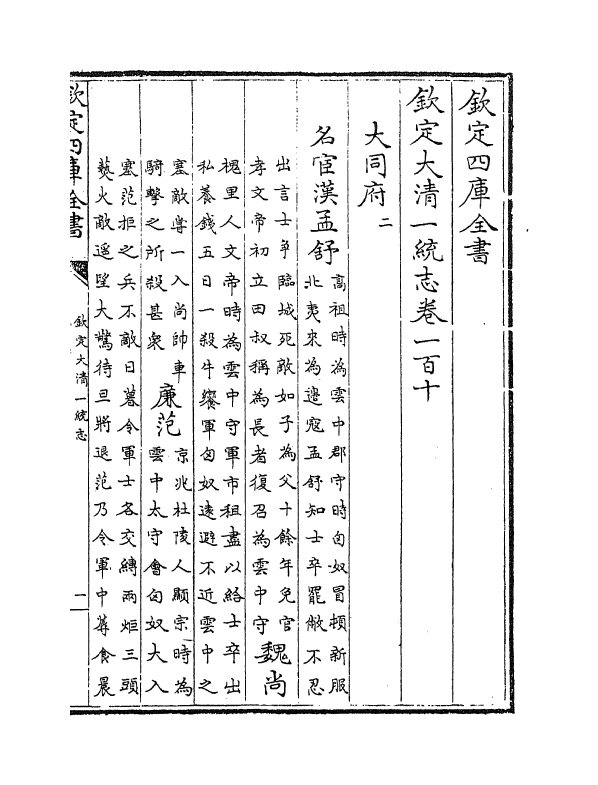 欽定四庫全書
欽定大清一統志卷一百十
大同府二
名宦漢孟舒
高祖時為雲中郡守時匈奴冒頓新服
北夷來為邊寇孟舒知士卒罷敝不忍
出言士爭臨城死敵如子為父十餘年免官
孝文帝初立田叔稱為長者復召為雲中守
魏尚
槐里人文帝時為雲中守軍市租盡以給士卒出
私養錢五日一殺牛饗軍匈奴遠避不近雲中之
塞敵嘗一入尚帥車
騎擊之所殺甚衆
廉范
京兆杜陵人顯宗時為
雲中太守會匈奴大入
塞范拒之兵不敵日暮令軍士各交縛兩炬三頭
爇火敵遥望大驚待旦將退范乃令軍中蓐食晨
欽定四庫全書
欽定大清一統志
一